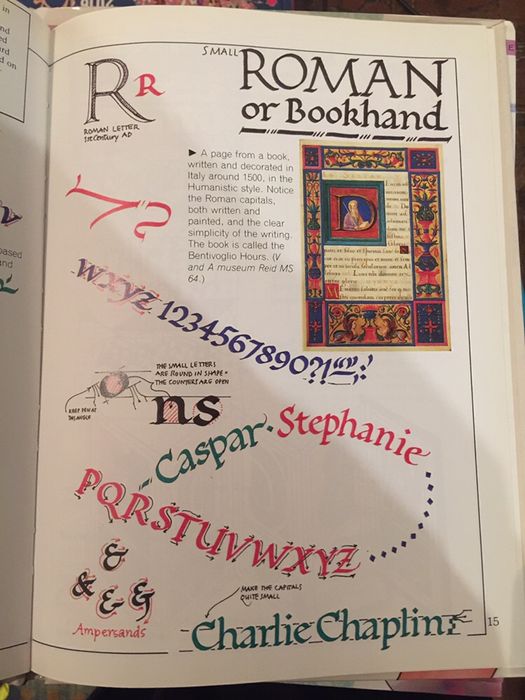 SMALL
ROMAN
or Bookhand
R R
ROMAN LETTER
1st Century AD
► A page from a book,
written and decorated in
Italy around 1500, in the
Humanistic style. Notice
the Roman capitals,
both written and
painted, and the clear
simplicity of the writing.
The book is called the
Bentivoglio Hours. (V
and A museum Reid MS
64.)
wxyz 1234567890?!
THE SMALL LETTERS
ARE ROUND IN SHAPE
THE COUNTERS ARE OPEN
KEEP PEN AT
THIS ANGLE
ns
Caspar · Stephanie
PQRSTUVWXYZ
&
& & &
Ampersands
MAKE THE CAPITALS
QUITE SMALL
Charlie Chaplin
15
in
nd
ed
rd
d on
based
nd
E